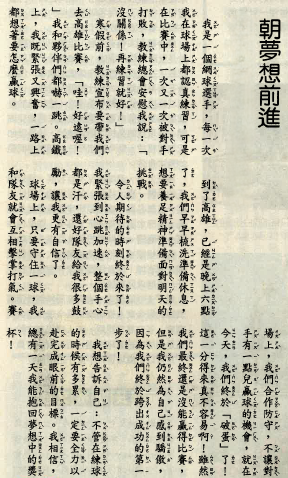 朝夢想前進
我是一個網球選手,每一次
我在球場上都認真練習,可是
在比賽中,一次又一次被對手
打敗,教練總會安慰我說:「
沒關係!再練習就好!」
寒假前,教練宣布要帶我們
去高雄比賽,「哇!好遠喔!
」我和夥伴們都嚇一跳。高鐵
上,我既緊張又興奮,一路上
都想著要怎麼贏球。
到了高雄,已經是晚上六點
了,我們早早梳洗準備休息,
想要養足精神準備面對明天的
挑戰。
令人期待的時刻終於來了!
我緊張到心跳加速,整個手心
都是汗,還好隊友給我很多鼓
勵,讓我更有自信了。
球場上,只要守住一球,我
和隊友就會互相擊掌打氣。賽
場上,我們合作防守,不讓對
手有一點兒贏球的機會。就在
今天,我們終於「破蛋」了!
這一分得來真不容易啊!雖然
我們最終還是沒能贏得比賽,
但是我仍然為自己感到驕傲,
因為我們終於跨出成功的第一
步了!
我想告訴自己:不管在練球
的時候有多累,一定要全力以
赴完成眼前的目標。我相信,
總有一天我能抱回夢想中的獎
杯!